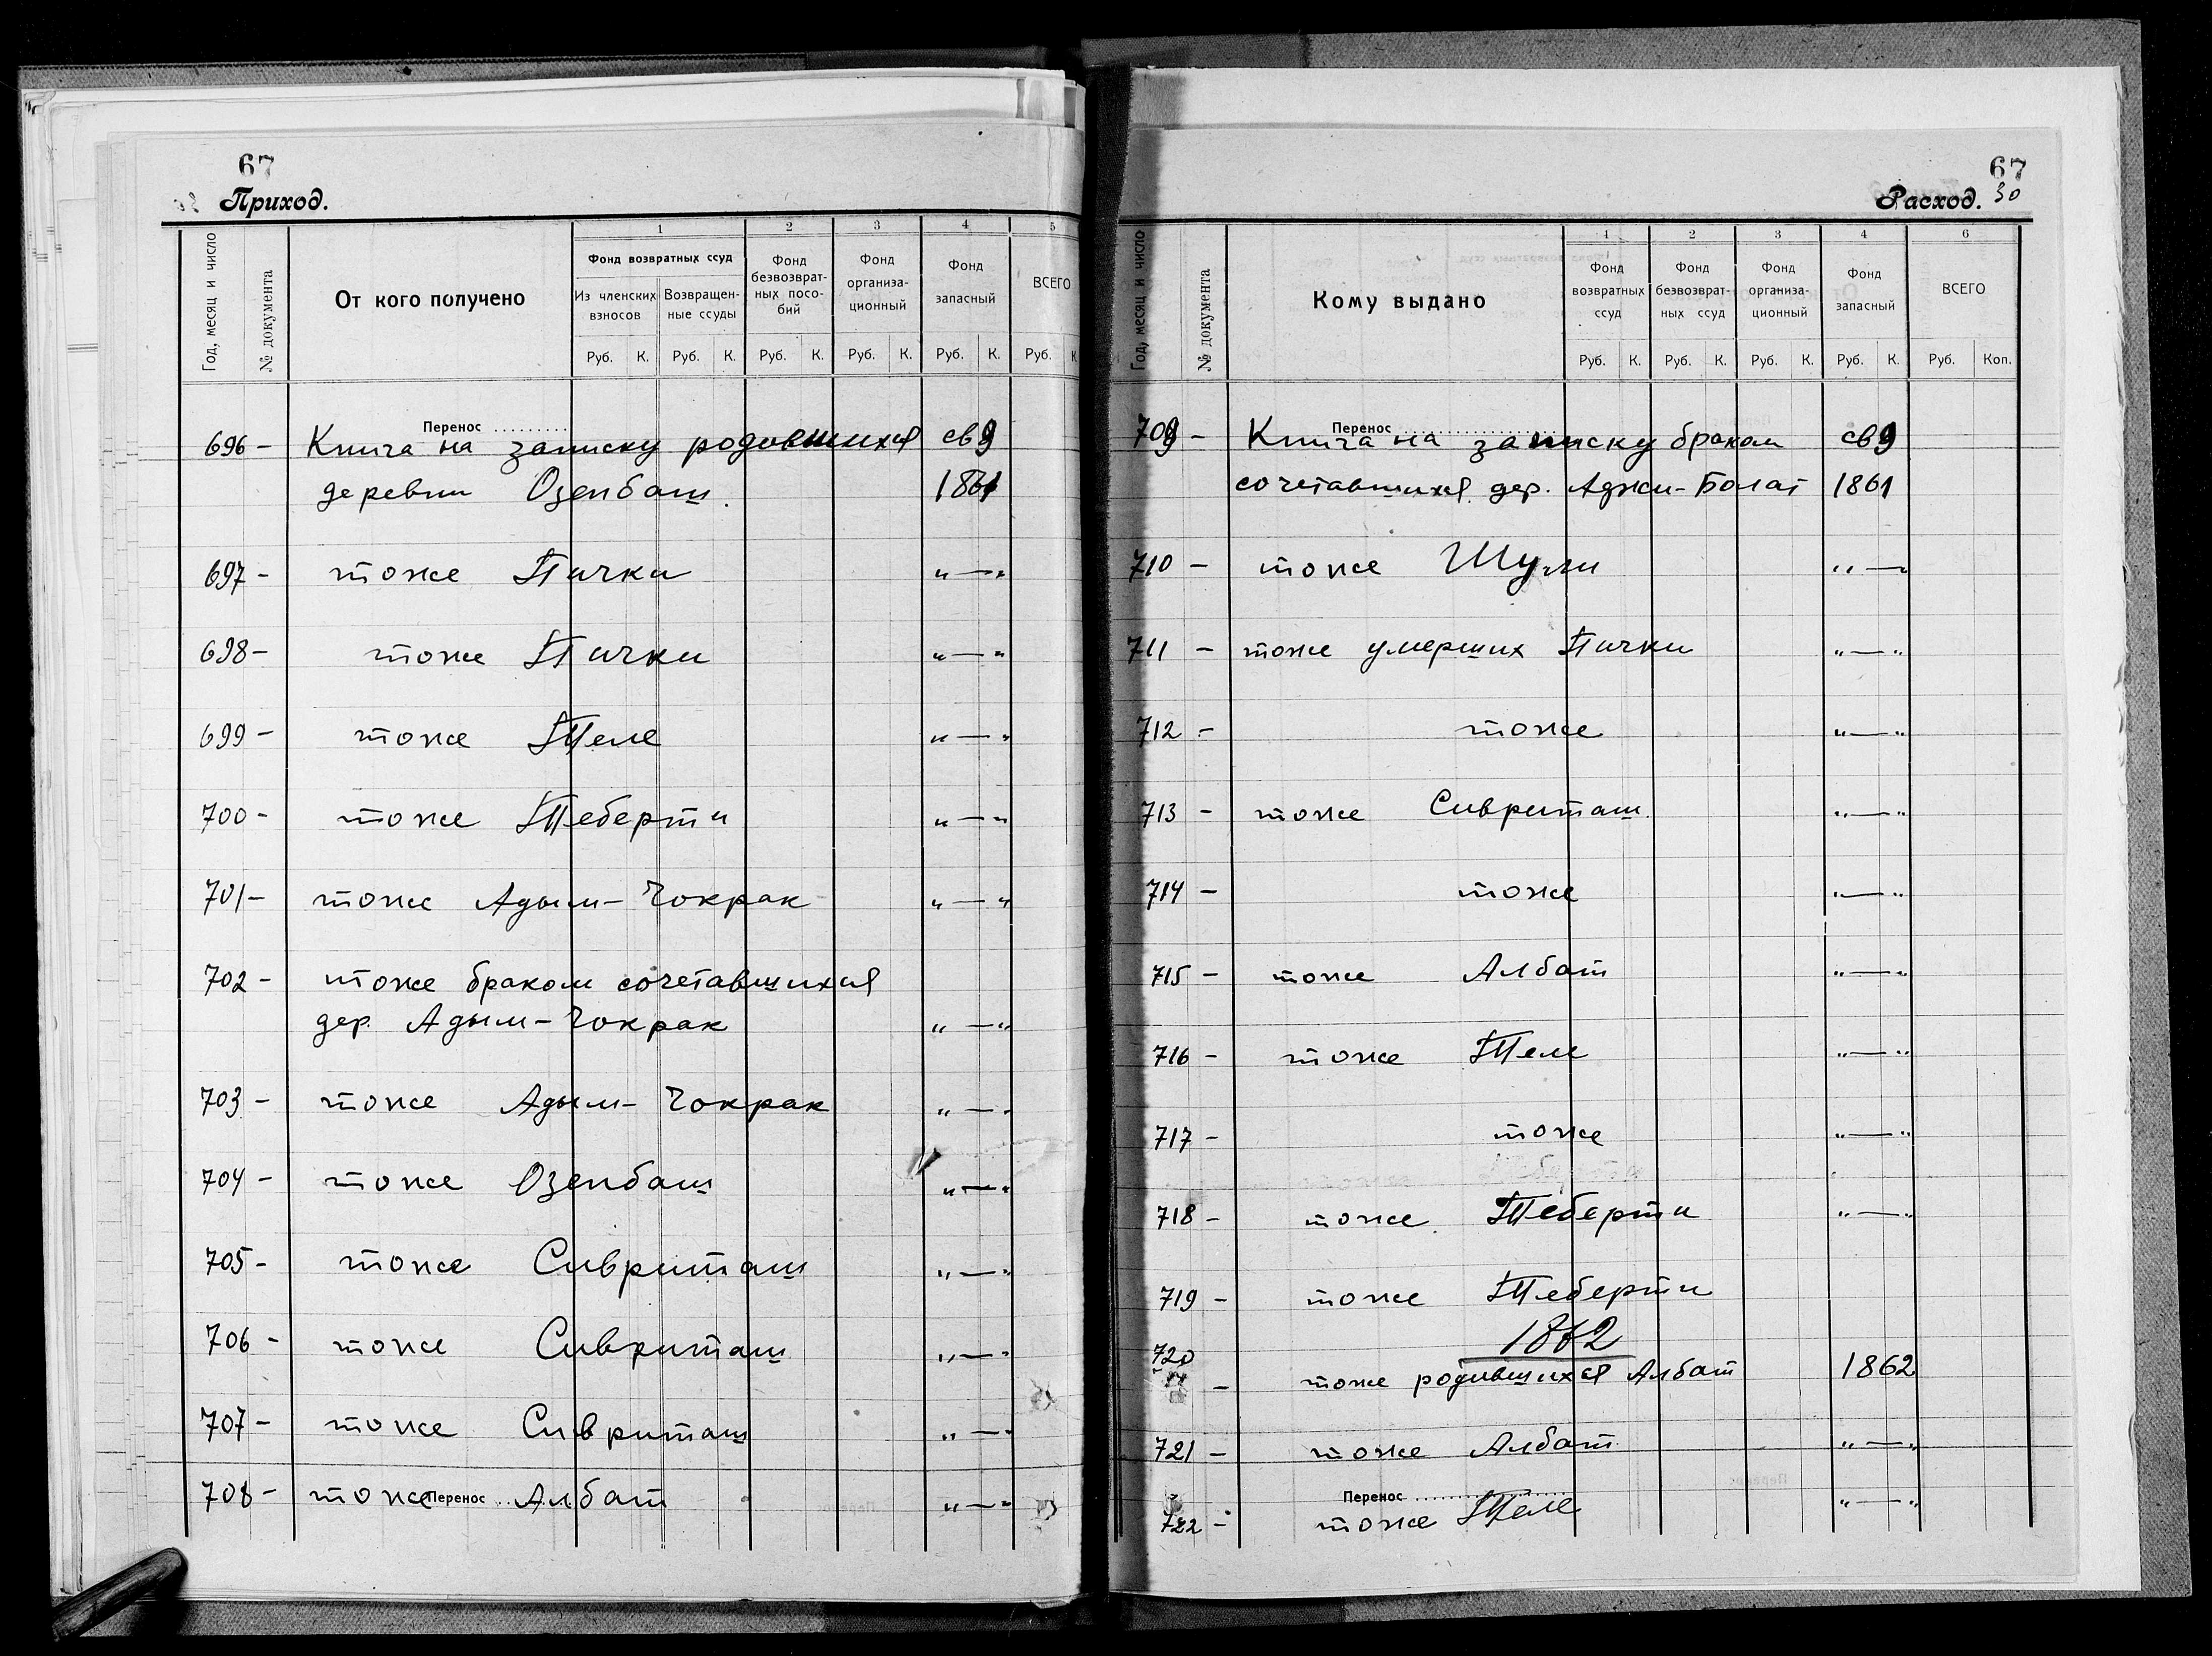 67
Приход.
Год, месяц и число
№ документа
От кого получено
1
Фонд возвратных ссуд
Из членских взносов
Возвращен-ные ссуды
2
Фонд безвозврат-ных посо-бий
3
Фонд организа-ционный
4
Фонд запасный
5
ВСЕГО
Руб. К. Руб. К. Руб. К. Руб. К. Руб. К. Руб. К
Перенос
696 – Книга на записку родовшихся св 9
деревни Озенбаш. 1861
697 – тоже Пички „—„
698 – тоже Пички „—„
699 – тоже Теле „—„
700 – тоже Теберти „—„
701 – тоже Адым-Чокрак „—„
702 – тоже браком сочетавшихся
дер. Адым-Чокрак „—„
703 – тоже Адым-Чокрак „—„
704 – тоже Озенбаш „—„
705 – тоже Сивриташ „—„
706 – тоже Сивриташ „—„
707 – тоже Сивриташ „—„
708 – тоже Албат „—„
Перенос
67
Расход. 30
Год, месяц и число
№ документа
Кому выдано
1
Фонд возвратных ссуд
2
Фонд безвозврат-ных ссуд
3
Фонд организа-ционный
4
Фонд запасный
6
ВСЕГО
Руб. К. Руб. К. Руб. К. Руб. К. Руб. Коп.
Перенос
709 – Книга на записку браком св 9
сочетавшихся дер. Аджи-Болат 1861
710 – тоже Шули „—„
711 – тоже умерших Пички „—„
712 – тоже „—„
713 – тоже Сивриташ „—„
714 – тоже „—„
715 – тоже Албат „—„
716 – тоже Теле „—„
717 – тоже „—„
718 – тоже Теберти „—„
719 – тоже Теберти
1862
720 – тоже родившихся Албат 1862
721 – тоже Албат „—„
Перенос
722 – тоже Теле „—„